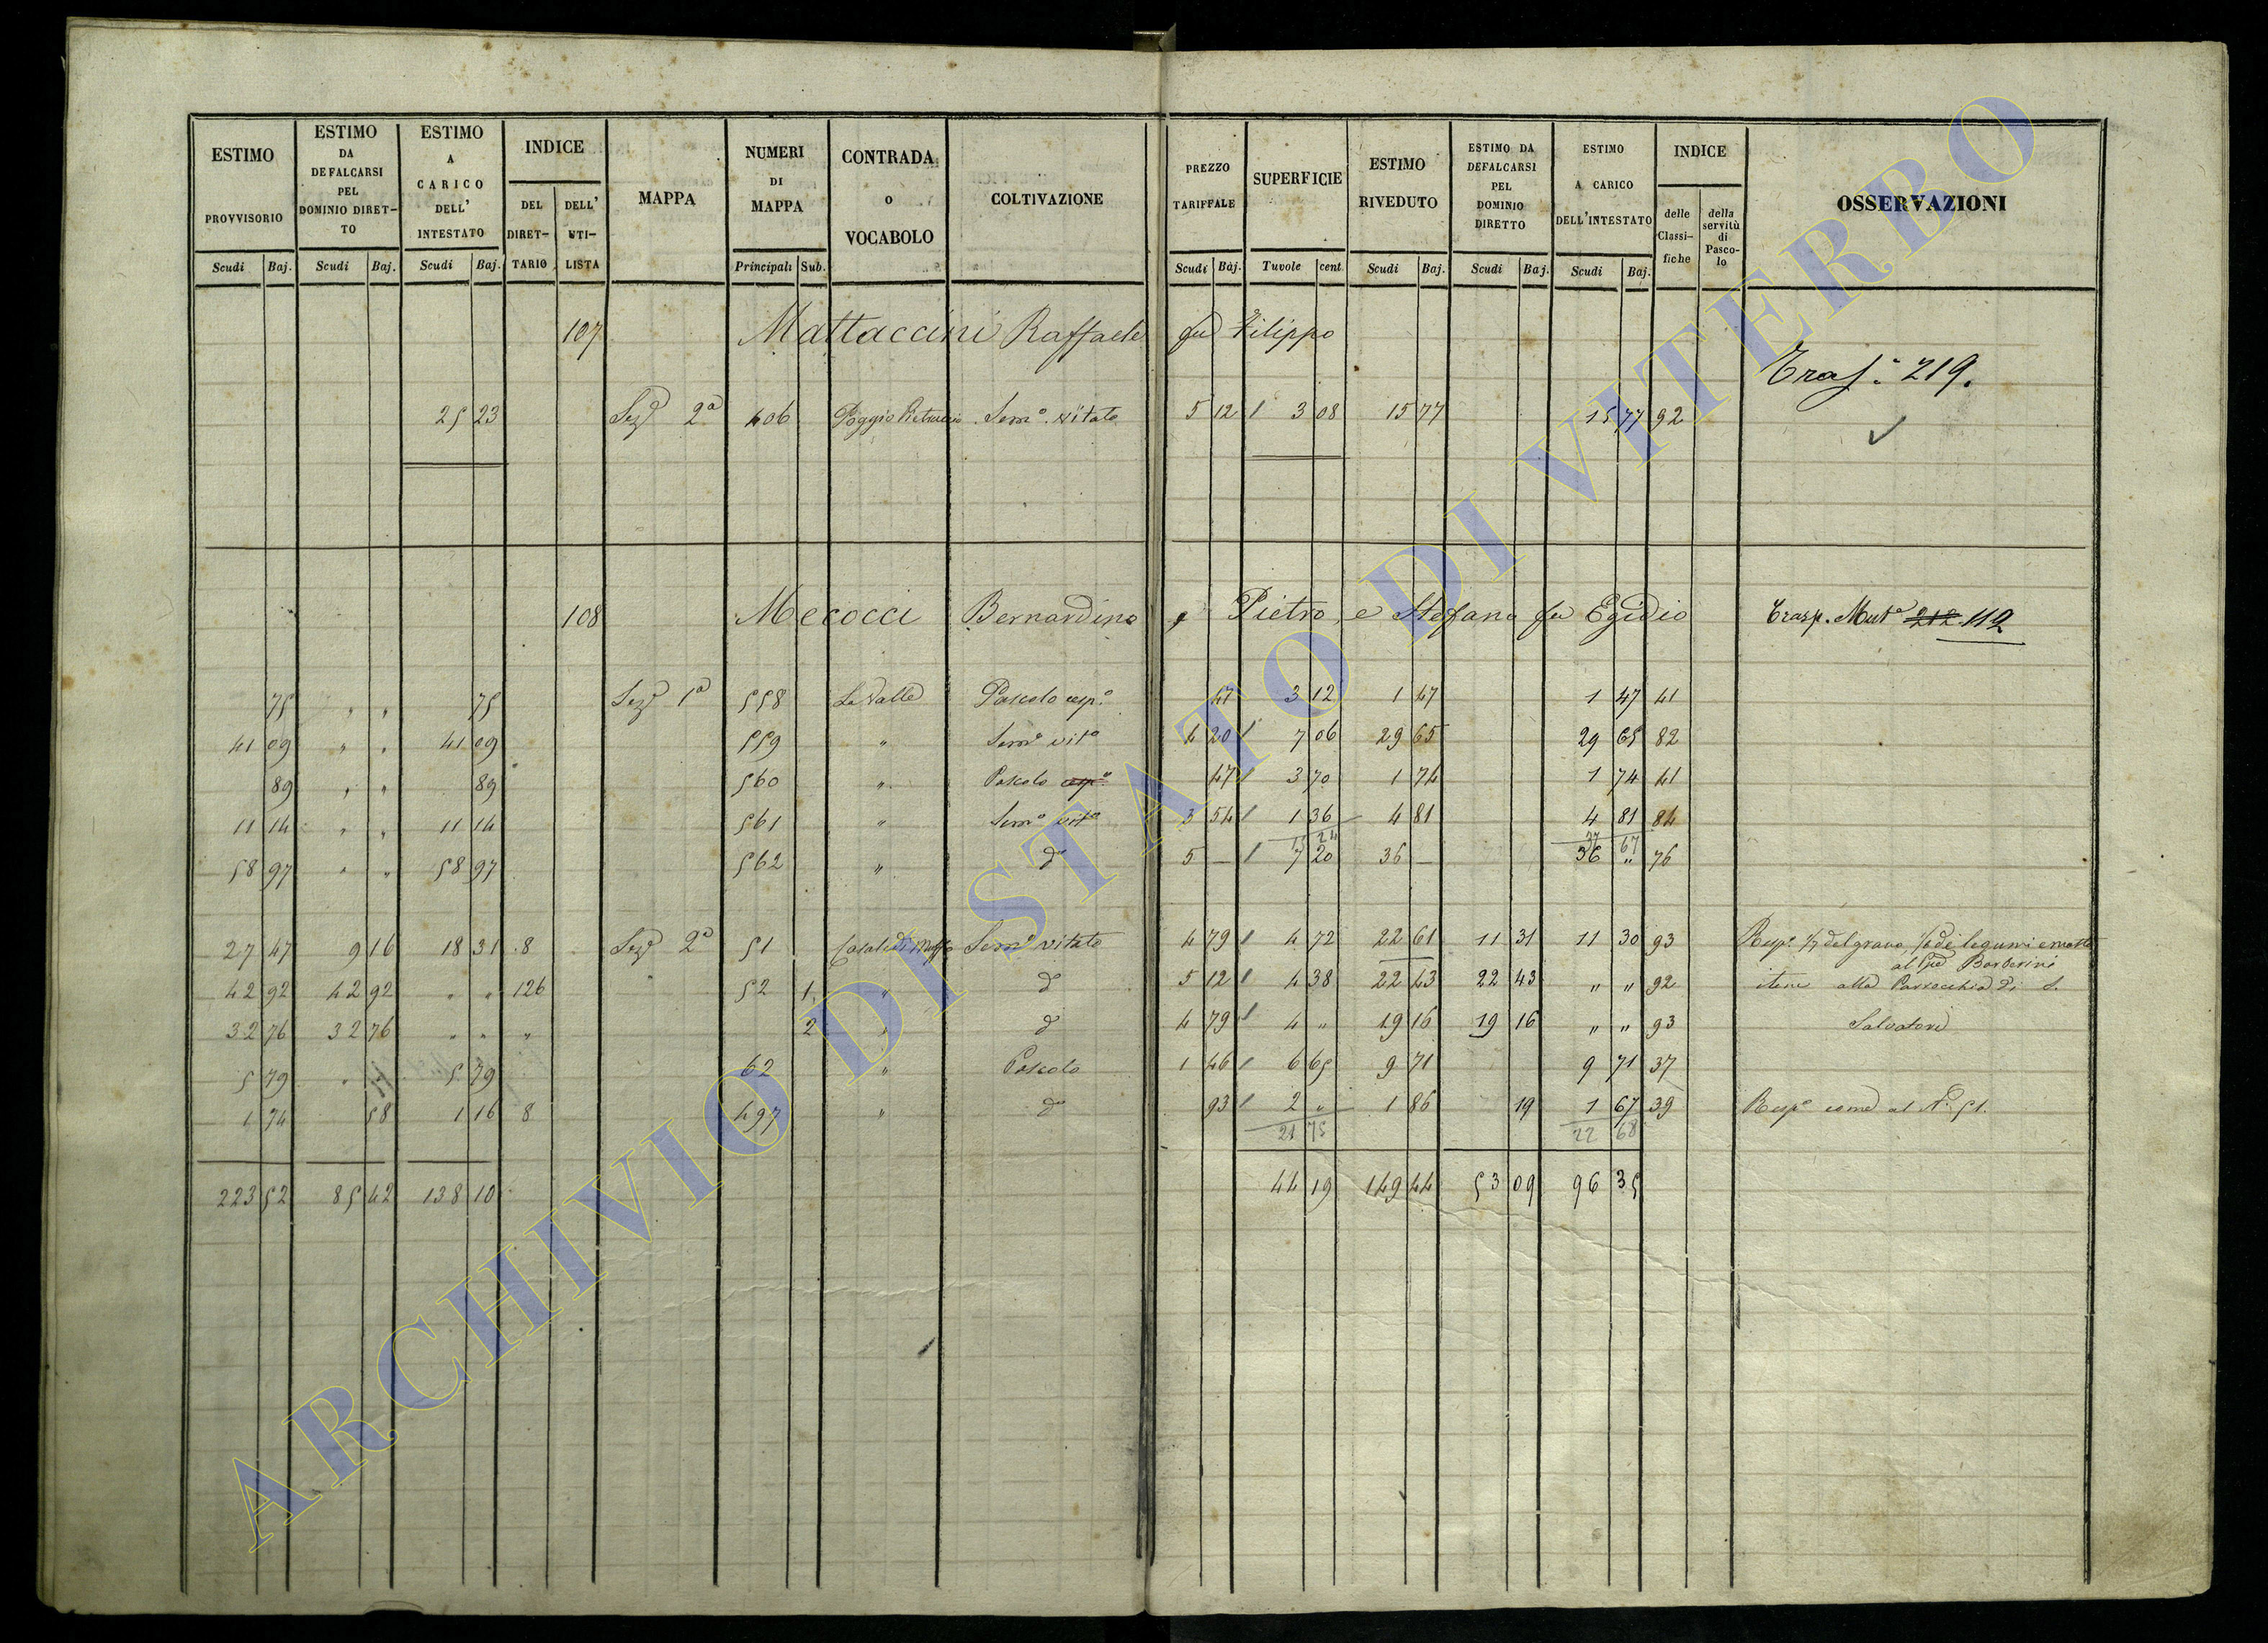 ESTIMO PROVVISORIO Scudi Baj.
ESTIMO DA DEFALCARSI PEL DOMINIO DIRETTO Scudi Baj.
ESTIMO A CARICO DELL' INTESTATO Scudi Baj.
INDICE DEL DIRETTARIO DELL' UTILISTA
MAPPA
NUMERI DI MAPPA Principali Sub.
CONTRADA o VOCABOLO
COLTIVAZIONE
PREZZO TARIFFALE Scudi Baj.
SUPERFICIE Tavole cent.
ESTIMO RIVEDUTO Scudi Baj.
ESTIMO DA DEFALCARSI PEL DOMINIO DIRETTO Scudi Baj.
ESTIMO A CARICO DELL'INTESTATO Scudi Baj.
INDICE delle Classifiche della servitù di Pascolo
OSSERVAZIONI
107 Mattaccini Raffaele fu Filippo
Trasp. 219.
25 23 Seze 2a 406 Poggio Sem.o vitato 5 12 / 3 08 15 77 15 77 92
108 Mecocci Bernardino, Pietro, e Stefano fu Egidio Trasp. Mut.a 212 112
75 " " 75 Seze 1a 558 La Valle Pascolo cesp.o 47 3 12 1 47 1 47 41
41 09 " " 41 09 559 " Sem.o vit.o 4 20 / 7 06 29 65 29 65 82
89 " " 89 560 " Pascolo cesp.o 47 / 3 70 1 74 1 74 41
11 14 " " 11 14 561 " Sem.o vit.o 3 54 / 1 36 4 81 4 81 84
15 24 37 67
58 97 " " 58 97 562 " d 5 — / 7 20 36 — 36 " 76
27 47 9 16 18 31 8 Seze 2a 51 Casale Sem.o vitato 4 79 / 4 72 22 61 11 31 11 30 93 Risp.e 1/7 del grano, 1/6 de legumi e
al Barberini
42 92 42 92 " " 126 52 1 " d 5 12 / 4 38 22 43 22 43 " " 92 item alla Parrocchia di S.
32 76 32 76 " " " 2 " d 4 79 / 4 " 19 16 19 16 " " 93 Salvatore
5 79 " 5 79 62 " Pascolo 1 46 / 6 65 9 71 9 71 37
1 74 58 1 16 8 497 " d 93 / 2 " 1 86 19 1 67 39 Risp.e come al N.o 51.
21 75 22 68
223 52 85 42 138 10 44 19 149 44 53 09 96 35
ARCHIVIO DI STATO DI VITERBO